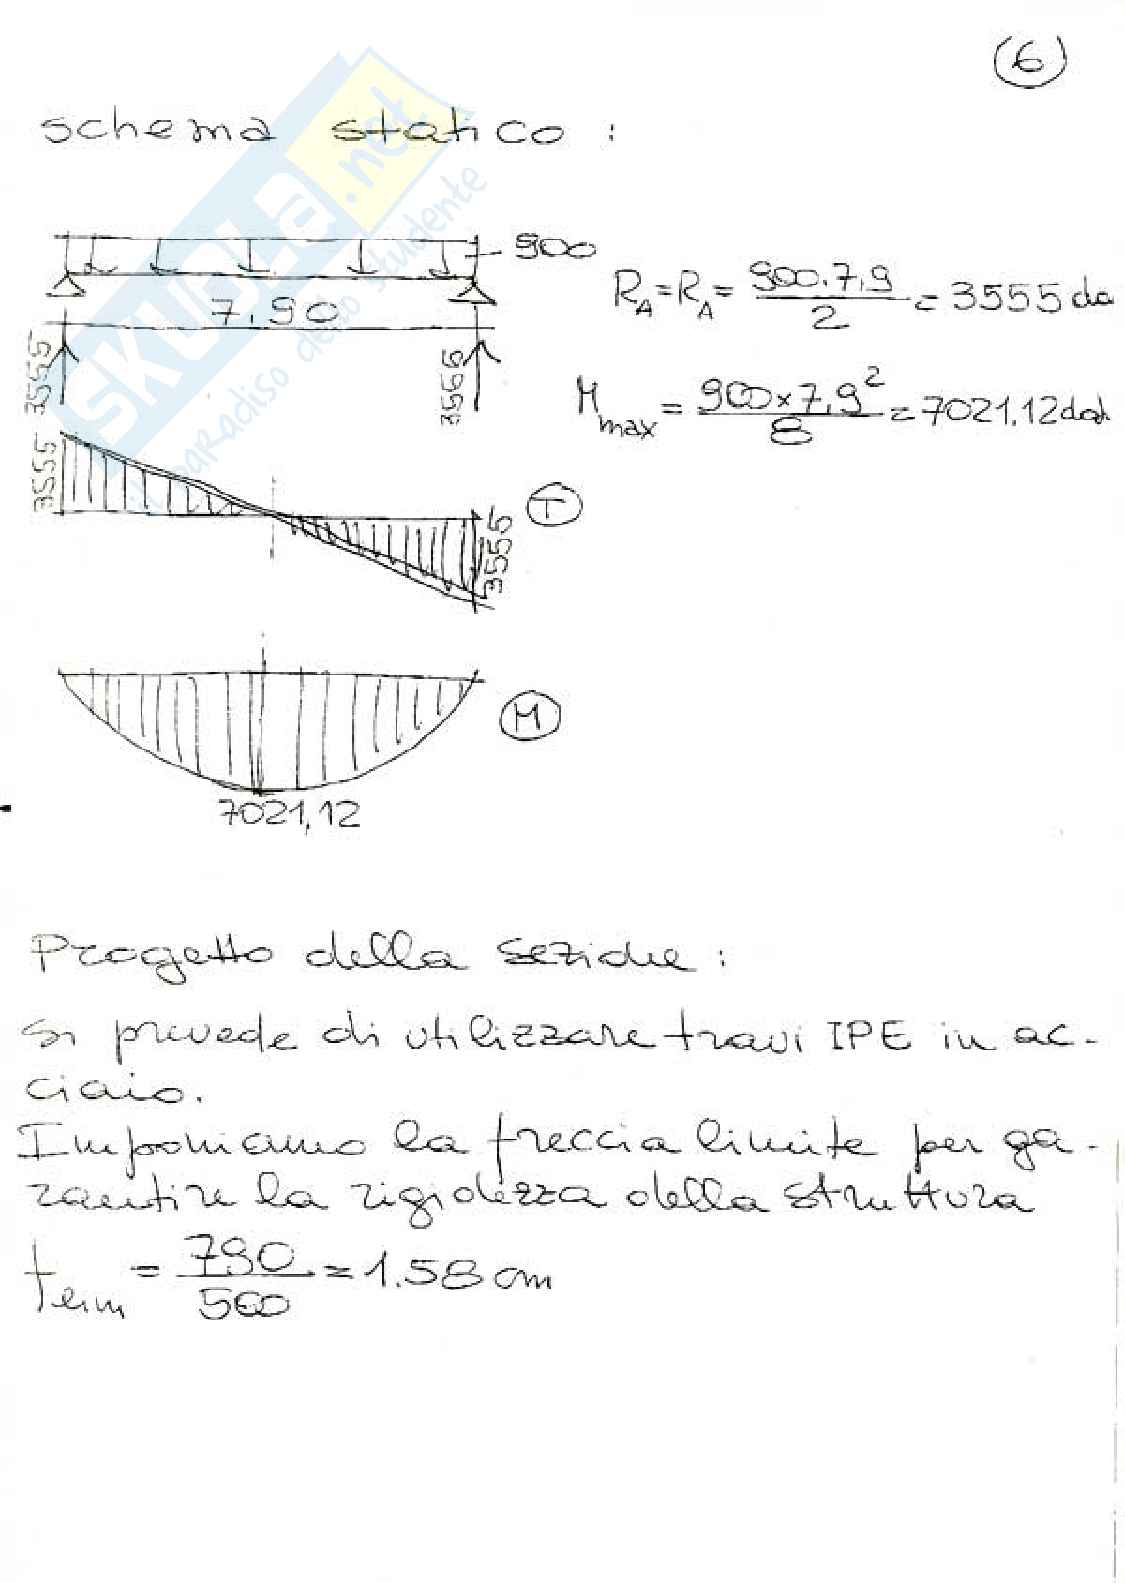 (6)
schema statico :
900
7.90
3555
3555
R_A = R_A = 900.7,9 / 2 = 3555 da
M_max = 900x7,9² / 8 = 7021.12 da
3555
3555
T
M
7021,12
Progetto della sezione :
Si prevede di utilizzare travi IPE in ac-
ciaio.
Imponiamo la freccia limite per ga-
rantire la rigidezza della struttura
f_lim = 790 / 500 = 1.58 cm
SKUOLA.net
il paradiso dello studente